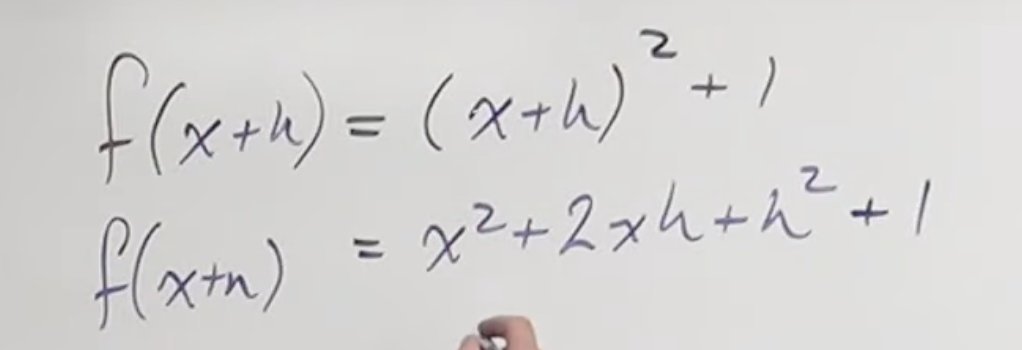 f(x+h) = (x+h)² + 1
f(x+h) = x² + 2xh + h² + 1